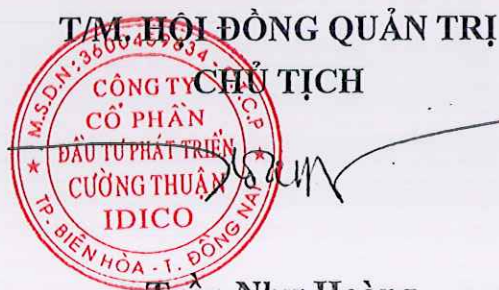 T/M. HỘI ĐỒNG QUẢN TRỊ
CHỦ TỊCH
M.S.D.N: 3600459834 - C.T.C.P
CÔNG TY
CỔ PHẦN
ĐẦU TƯ PHÁT TRIỂN
CƯỜNG THUẬN
IDICO
TP. BIÊN HÒA - T. ĐỒNG NAI
Trần Như Hoàng